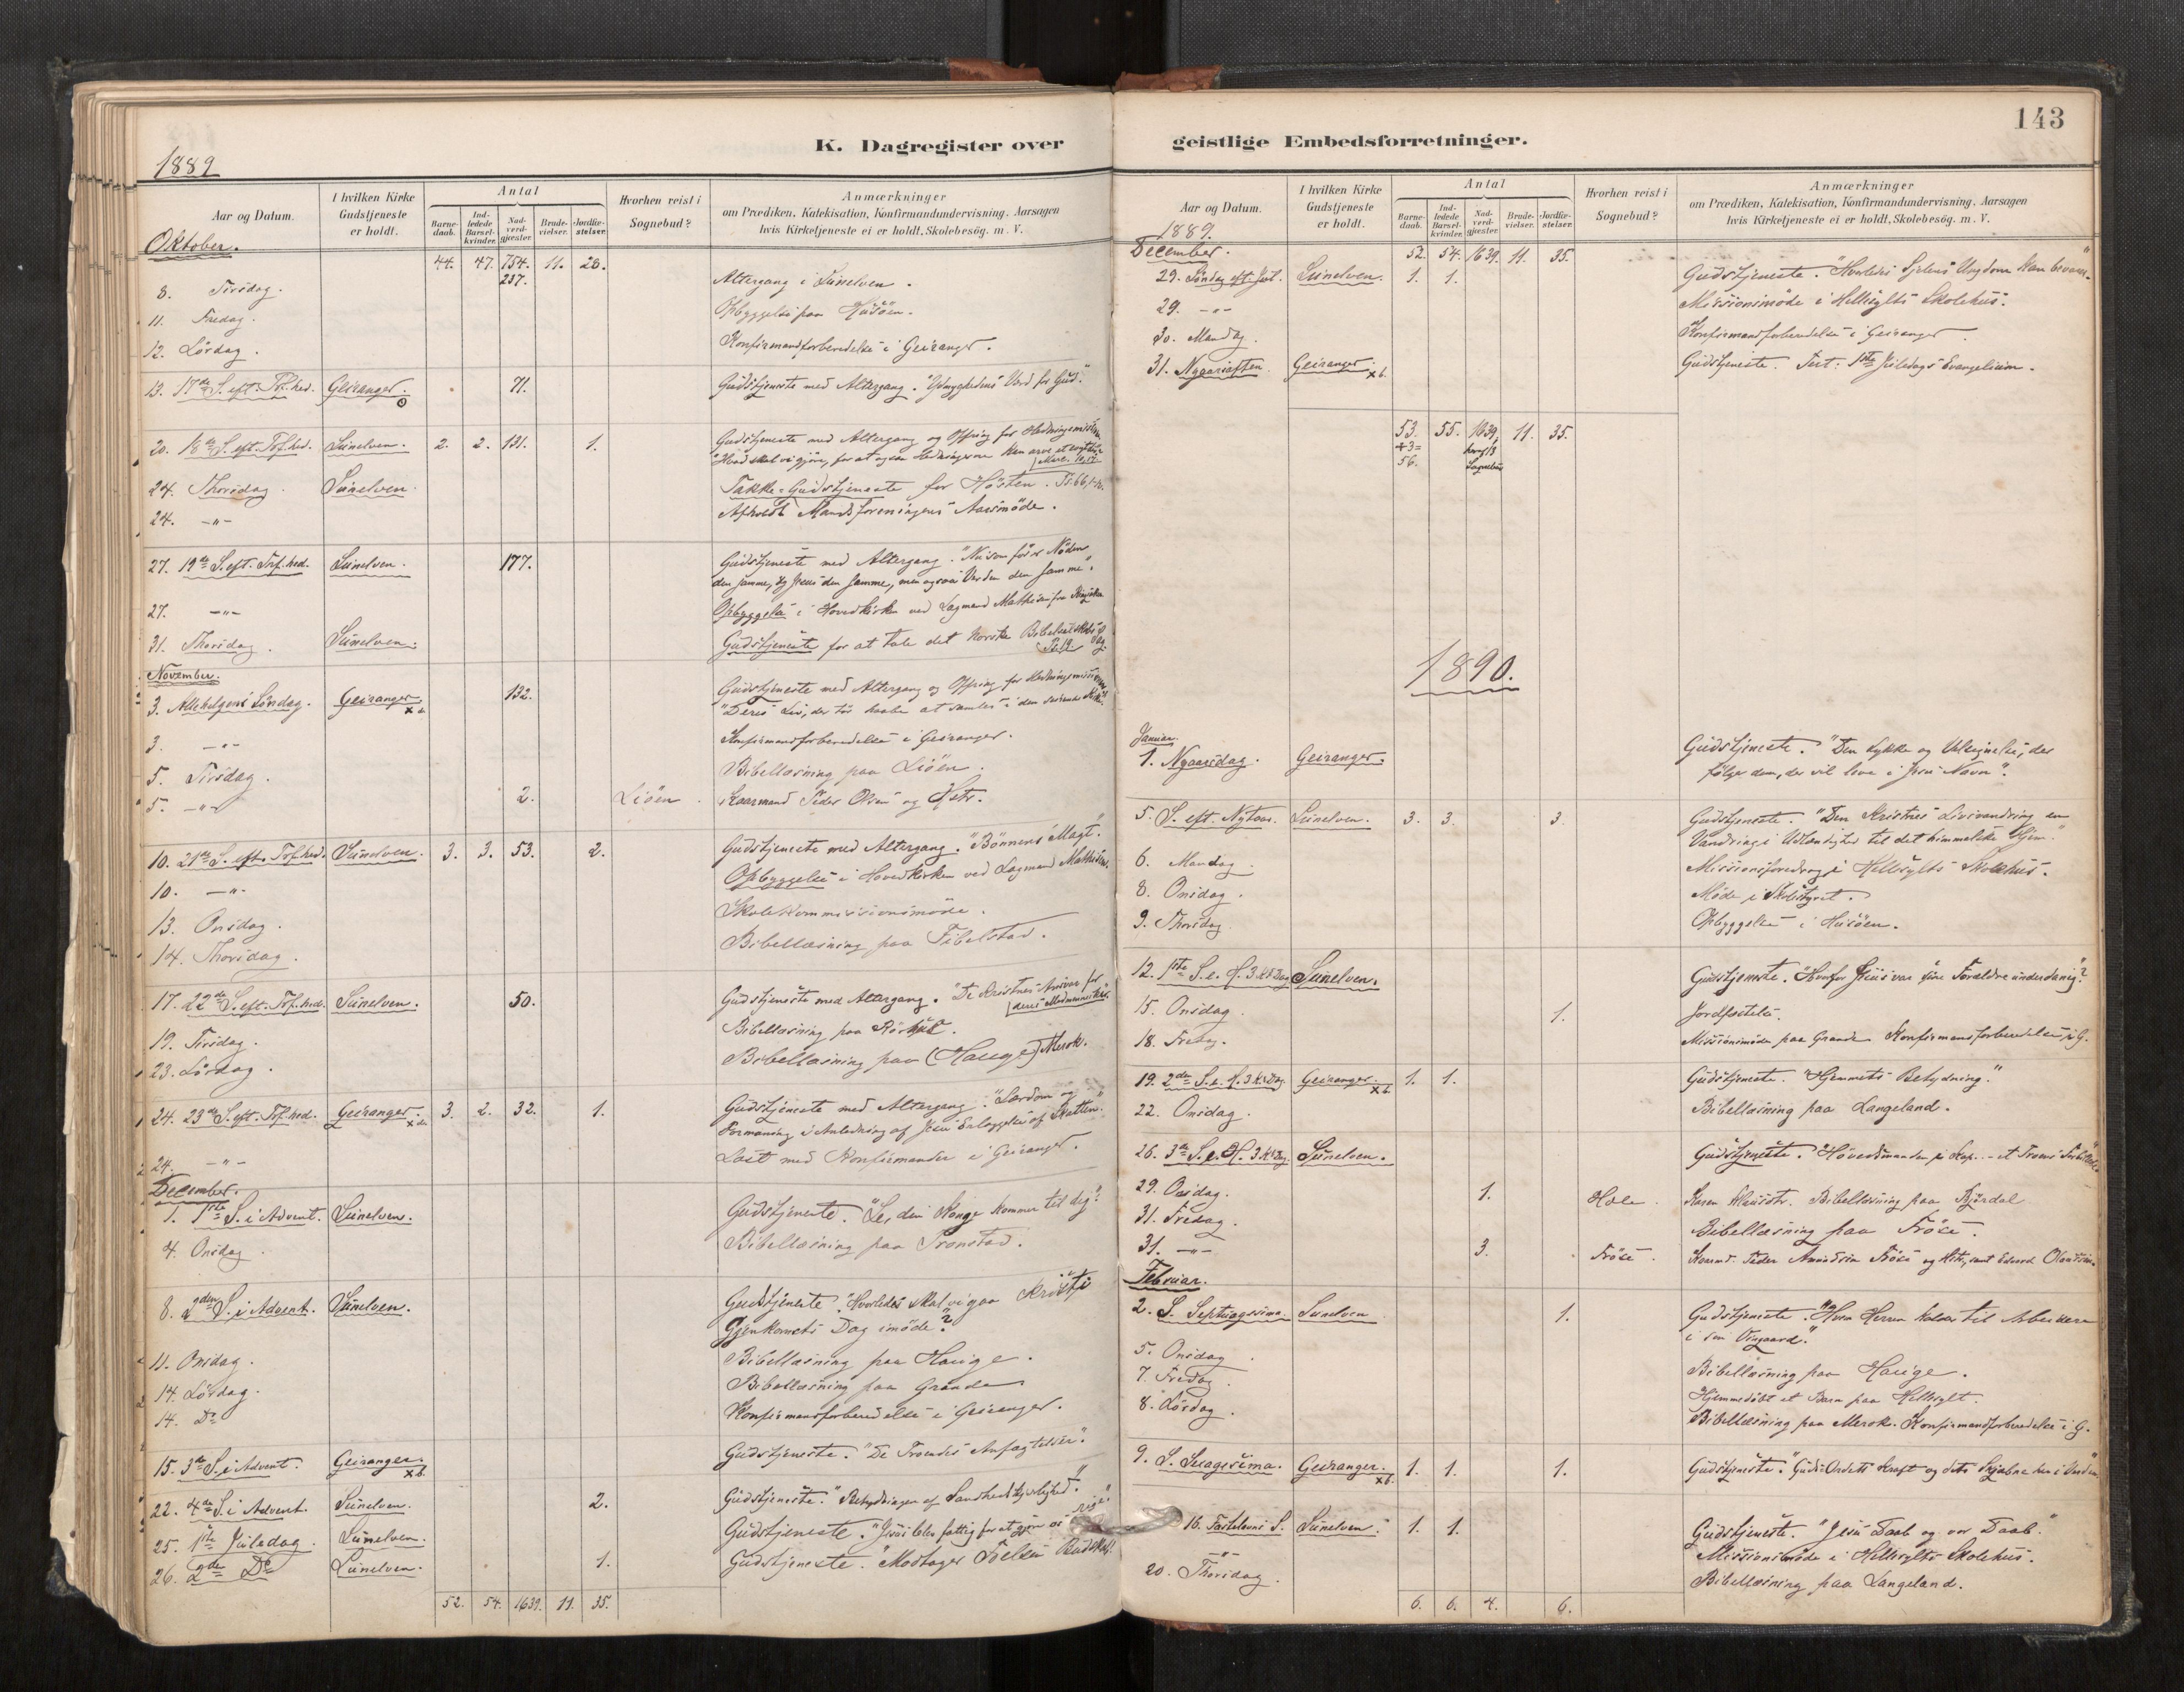 K. Dagregister over
1889
Aar og Datum.
I hvilken Kirke Gudstjeneste er holdt.
Antal
Barnedaab.
Indledede Barselkvinder.
Nadverdgjæster.
Brudevielser.
Jordfæstelser.
Hvorhen reist i Sognebud?
Anmærkninger
om Prædiken, Katekisation, Konfirmandundervisning. Aarsagen
hvis Kirketjeneste ei er holdt. Skolebesög. m. V.
Oktober. 44. 47. 754. 11. 28.
8. Tirsdag. 237. Altergang i Sunelven.
11. Fredag. Opbyggelse paa Husöen.
12. Lördag. Konfirmandforberedelse i Geiranger.
13. 17de S. eft. Trf.hed. Geiranger. 71. Gudstjeneste med Altergang. "Ydmyghedens Værd for Gud."
20. 18de S. eft. Trf.hed. Sunelven. 2. 2. 131. 1. Gudstjeneste med Altergang og Offring for Hedningemissionen
"Hvad skal vi gjöre, for at ogsaa Hedningerne kan arve et evigt Liv
Marc. 10, 17.
24. Thorsdag. Sunelven. Takke-Gudstjeneste for Hösten. Ps. 66, 1-12.
24. -"- Afholdt Mandsforeningens Aarsmöde.
27. 19de S. eft. Trf.hed. Sunelven. 177. Gudstjeneste med Altergang. "Nu som för er Nöden
den samme, og Jesus den samme, men ogsaa Verden den samme".
27. -"- Opbyggelse i Hovedkirken ved Lagmand Mathisen fra
31. Thorsdag. Sunelven. Gudstjeneste for at tale det norske Bibelselskabs Sag.
Ps. 19.
November.
3. Allehelgens Söndag. Geiranger. 132. Gudstjeneste med Altergang og Offring for Hedningemissionen
"Deres Liv, der tör haabe at samles i den
3. -"- Konfirmandforberedelse i Geiranger.
5. Tirsdag. Bibellæsning paa Liöen.
5. -"- 2. Liöen. Kaarmand Peder Olsen og Hstr.
10. 21de S. eft. Trf.hed. Sunelven. 3. 3. 53. 2. Gudstjeneste med Altergang. "Bönnens Magt".
10. -"- Opbyggelse i Hovedkirken ved Lagmand Mathisen.
13. Onsdag. Skolekommissionsmöde.
14. Thorsdag. Bibellæsning paa Tibelstad.
17. 22de S. eft. Trf.hed. Sunelven. 50. Gudstjeneste med Altergang. "De Kristnes Ansvar for
deres Medmennesker".
19. Tirsdag. Bibellæsning paa
23. Lördag. Bibellæsning paa (Hauge) Merok.
24. 23de S. eft. Trf.hed. Geiranger. 3. 2. 32. 1. Gudstjeneste med Altergang. "Lærdom og
Formaning i Anledning af Jesu Erlæggelse af Skatten".
24. -"- Læst med Konfirmander i Geiranger.
December.
1. 1ste S. i Advent. Sunelven. Gudstjeneste. "Se, din Konge kommer til dig".
4. Onsdag. Bibellæsning paa Tronstad.
8. 2den S. i Advent. Sunelven. Gudstjeneste. "Hvorledes skal vi gaa Kristi
Gjenkomsts Dag imöde?"
11. Onsdag. Bibellæsning paa Hauge.
14. Lördag. Bibellæsning paa Grande
14. Do Konfirmandforberedelse i Geiranger.
15. 3die S. i Advent. Geiranger. xb. Gudstjeneste. "De Troendes Anfægtelser".
22. 4de S. i Advent. Sunelven. 2. Gudstjeneste. "Betydningen af Sandhedskjærlighed".
25. 1ste Juledag. Sunelven. Gudstjeneste. "Jesus blev fattig for at gjöre os rige".
26. 2den Do Sunelven. 1. Gudstjeneste. "Modtager Frelsens Budskab!
52. 54. 1639. 11. 35.
143
geistlige Embedsforretninger.
Aar og Datum.
I hvilken Kirke Gudstjeneste er holdt.
Antal
Barnedaab.
Indledede Barselkvinder.
Nadverdgjæster.
Brudevielser.
Jordfæstelser.
Hvorhen reist i Sognebud?
Anmærkninger
om Prædiken, Katekisation, Konfirmandundervisning. Aarsagen
hvis Kirketjeneste ei er holdt. Skolebesög. m. V.
1889.
December. 52. 54. 1639. 11. 35.
29. Söndag eft. Jul. Sunelven. 1. 1. Gudstjeneste. "Hvorledes Sjelens Ungdom kan bevares".
29. -"- Missionsmöde i Hellsylts Skolehus.
30. Mandag. Konfirmandforberedelse i Geiranger.
31. Nyaarsaften. Geiranger. xb. Gudstjeneste. Text: 1ste Juledags Evangelium.
53. 55. 1639, 11. 35.
+3=
56.
hvoraf 13
Sognebud
1890.
Januar.
1. Nyaarsdag. Geiranger. Gudstjeneste. "Den Lykke og Velsignelse, der
fölger dem, der vil leve i Jesu Navn".
5. S. eft. Nytaar. Sunelven. 3. 3. 3. Gudstjeneste. "Den Kristnes Livsvandring en
Vandring i Udlændighed til det himmelske Hjem."
6. Mandag. Missionsforedrag i Hellsylts Skolehus.
8. Onsdag. Möde i Skolestyret.
9. Thorsdag. Opbyggelse i Husöen.
12. 1ste S. e. H. 3 K. Dag Sunelven. Gudstjeneste. "Hvorfor Jesus var sine Forældre underdanig"?
15. Onsdag. 1. Jordfæstelse.
18. Fredag. Missionsmöde paa Grande. Konfirmandforberedelse i G.
19. 2den S. e. H. 3 K. Dag. Geiranger. xb. 1. 1. Gudstjeneste. "Hjemmets Betydning."
22. Onsdag. Bibellæsning paa Langeland.
26. 3die S. e. H. 3 K. Dag. Sunelven. Gudstjeneste. "Hövedsmanden i Kap. - et Troens Forbillede".
29. Onsdag. 1. Hole. Karen Bibellæsning paa Björdal
31. Fredag. Bibellæsning paa Fröse.
31. -"- 3. Fröse. Kaarmd. Peder Amundsen Fröse og Hstr, samt Edvard
Februar.
2. S. Septuagesima. Sunelven 1. Gudstjeneste. "Hvem Herren kalder til Arbeidere
i sin Vingaard."
5. Onsdag. Bibellæsning paa Hauge.
7. Fredag. Hjemmedöbt et Barn paa Hellsylt.
8. Lördag. Bibellæsning paa Merok. Konfirmandforberedelse i G.
9. S. Sexagesima. Geiranger. xb. 1. 1. 1. Gudstjeneste. "Guds Ordets Kraft og dets Skjæbne her i Verden"
16. Fastelavns S. Sunelven. 1. 1. Gudstjeneste. "Jesu Daab og vor Daab."
-"- Missionsmöde i Hellsylts Skolehus.
20. Thorsdag. Bibellæsning paa Langeland.
6. 6. 4. 6.